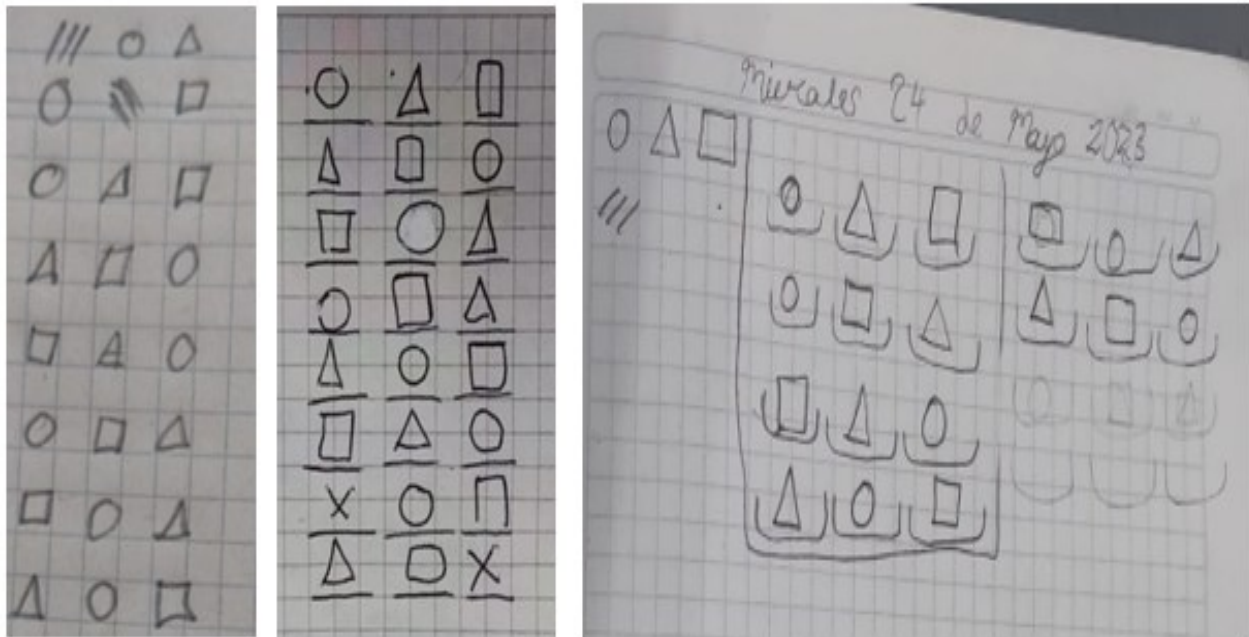 Miercales 24 de Mayo 2023